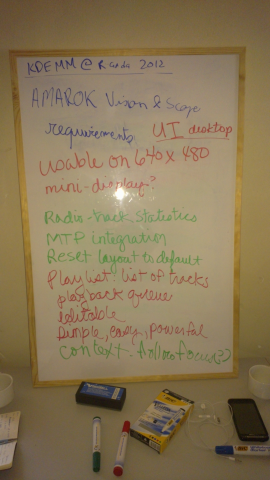 KDEMM @ Randa 2012
AMAROK Vision & Scope
requirements UI desktop
usable on 640x480
mini-display?
Radio-track statistics
MTP integration
Reset layout to default
Playlist: list of tracks
playback queue
editable
Simple, easy, powerful
context -